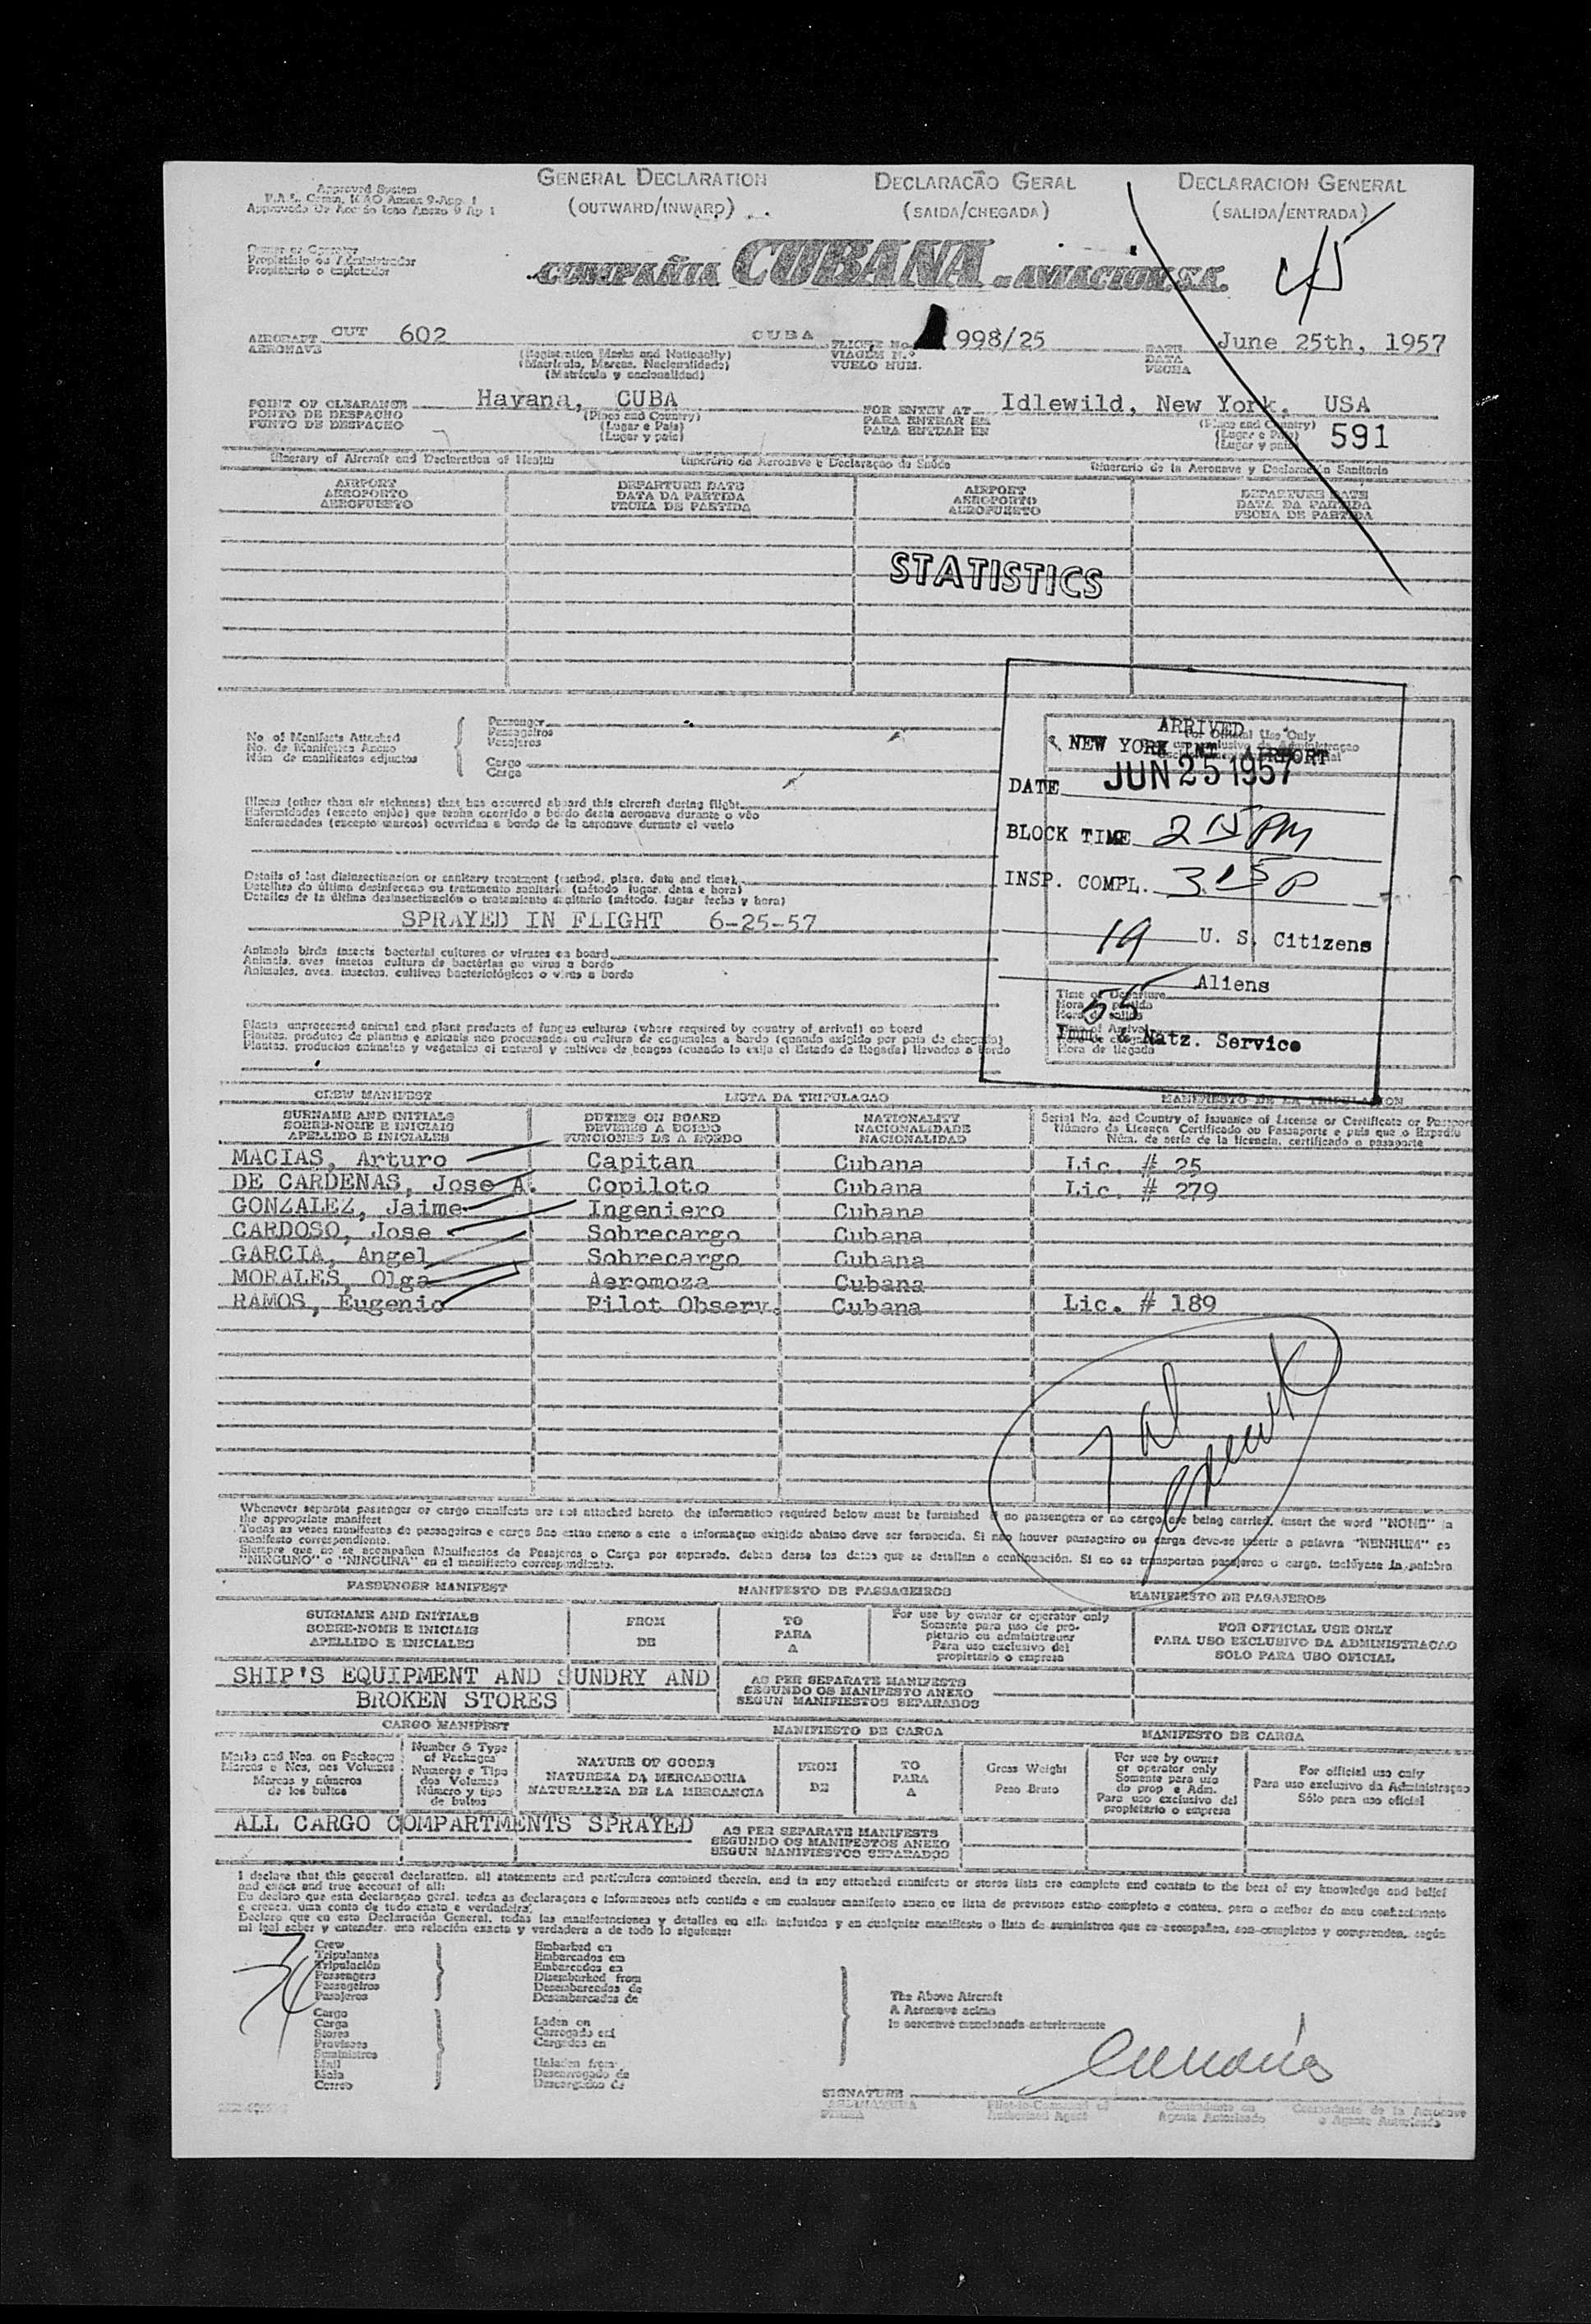 Approved System
GENERAL DECLARATION
(OUTWARD/INWARD)
DECLARACÃO GERAL
(SAIDA/CHEGADA)
DECLARACION GENERAL
(SALIDA/ENTRADA)
Owner or Operator
Propietário ou Administrador
Propietario o explotador
COMPAÑIA CUBANA DE AVIACION, S.A.
AIRCRAFT CUT 602 CUBA FLIGHT No. 998/25 DATE June 25th, 1957
AERONAVE VIAGEM N.º DATA
(Registration Marks and Nationality) VUELO NUM. FECHA
(Matrícula, Marcas, Nacionalidade)
(Matrícula y nacionalidad)
POINT OF CLEARANCE Havana, CUBA FOR ENTRY AT Idlewild, New York, USA
PONTO DE DESPACHO (Place and Country) PARA ENTRAR EM (Place and Country)
PUNTO DE DESPACHO (Lugar e País) PARA ENTRAR EN (Lugar e País) 591
(Lugar y país) (Lugar y país)
Itinerary of Aircraft and Declaration of Health Itinerário da Aeronave e Declaraçao da Saúde Itinerario de la Aeronave y Declaración Sanitaria
AIRPORT DEPARTURE DATE AIRPORT DEPARTURE DATE
AEROPORTO DATA DA PARTIDA AEROPORTO DATA DA PARTIDA
AEROPUERTO FECHA DE PARTIDA AEROPUERTO FECHA DE PARTIDA
STATISTICS
No of Manifests Attached
No. de Manifestos Anexo
Núm de manifiestos adjuntos
Passenger
Passageiros
Pasajeros
Cargo
Carga
ARRIVED
NEW YORK INT. AIRPORT
DATE JUN 25 1957
BLOCK TIME 2 15 PM
INSP. COMPL. 3 15 P
19 U. S. Citizens
55 Aliens
Imm. & Natz. Service
Illness (other than air sickness) that has occurred aboard this aircraft during flight
Enfermidades (exceto enjôo) que tenha ocorrido a bordo desta aeronave durante o vôo
Enfermedades (excepto mareos) ocurridas a bordo de la aeronave durante el vuelo
Details of last disinsectization or sanitary treatment (method, place, date and time)
Detalhes da última desinfeccao ou tratamento sanitario (método lugar, data e hora)
Detalles de la última desinsectización o tratamiento sanitario (método, lugar fecha y hora)
SPRAYED IN FLIGHT 6-25-57
Animals birds insects bacterial cultures or viruses on board
Animais, aves insetos cultura de bactérias ou virus a bordo
Animales, aves, insectos, cultivos bacteriológicos o virus a bordo
Plants unprocessed animal and plant products of fungus cultures (where required by country of arrival) on board
Plantas, produtos de plantas e animais nao processados ou cultura de cogumelos a bordo (quando exigido por país de chegada)
Plantas, productos animales y vegetales al natural y cultivos de hongos (cuando lo exija el Estado de llegada) llevados a bordo
CREW MANIFEST LISTA DA TRIPULACAO MANIFIESTO DE LA TRIPULACION
SURNAME AND INITIALS DUTIES ON BOARD NATIONALITY Serial No. and Country of Issuance of License or Certificate or Passport
SOBRE-NOME E INICIAIS DEVERES A BORDO NACIONALIDADE Número da Licença Certificado ou Passaporte e país que o Expediu
APELLIDO E INICIALES FUNCIONES DE A BORDO NACIONALIDAD Núm. de serie de la licencia, certificado o pasaporte
MACIAS, Arturo Capitan Cubana Lic. # 25
DE CARDENAS, Jose A. Copiloto Cubana Lic. # 279
GONZALEZ, Jaime Ingeniero Cubana
CARDOSO, Jose Sobrecargo Cubana
GARCIA, Angel Sobrecargo Cubana
MORALES, Olga Aeromoza Cubana
RAMOS, Eugenio Pilot Observ. Cubana Lic. # 189
Whenever separate passenger or cargo manifests are not attached hereto, the information required below must be furnished If no passengers or no cargo are being carried, insert the word "NONE" in
the appropriate manifest
Todas as vezes manifestos de passageiros e carga nao estao anexo a este a informaçao exigida abaixo deve ser fornecida. Si não houver passageiro ou carga deve-se inserir a palavra "NENHUM" no
manifesto correspondiente.
Siempre que no se acompañen Manifiestos de Pasajeros o Carga por separado, deban darse los datos que se detallan a continuación. Si no se transportan pasajeros o carga, inclúyase la palabra
"NINGUNO" o "NINGUNA" en el manifiesto correspondiente.
PASSENGER MANIFEST MANIFESTO DE PASSAGEIROS MANIFIESTO DE PASAJEROS
SURNAME AND INITIALS FROM TO For use by owner or operator only FOR OFFICIAL USE ONLY
SOBRE-NOME E INICIAIS DE PARA Somente para uso de pro- PARA USO EXCLUSIVO DA ADMINISTRACAO
APELLIDO E INICIALES A pietario ou administrador SOLO PARA USO OFICIAL
Para uso exclusivo del
propietario o empresa
SHIP'S EQUIPMENT AND SUNDRY AND AS PER SEPARATE MANIFESTS
BROKEN STORES SEGUNDO OS MANIFESTO ANEXO
SEGUN MANIFIESTOS SEPARADOS
CARGO MANIFEST MANIFIESTO DE CARGA MANIFESTO DE CARGA
Marks and Nos. on Packages Number & Type of Packages NATURE OF GOODS FROM TO Gross Weight For use by owner or operator only For official use only
Marcas e Nos, nos Volumes Numeros e Tipo dos Volumes NATUREZA DA MERCADORIA DE PARA Peso Bruto Somente para uso do prop e Adm. Para uso exclusivo da Administraçao
Marcas y números de los bultos Número y tipo de bultos NATURALEZA DE LA MERCANCIA A Para uso exclusivo del propietario o empresa Sólo para uso oficial
ALL CARGO COMPARTMENTS SPRAYED AS PER SEPARATE MANIFESTS
SEGUNDO OS MANIFESTOS ANEXO
SEGUN MANIFIESTOS SEPARADOS
I declare that this general declaration, all statements and particulars contained therein, and in any attached manifests or stores lists are complete and contain to the best of my knowledge and belief
and exact and true account of all:
Eu declaro que esta declaraçao geral, todas as declaraçoes e informaçoes nela contida e em cualquer manifesto anexo ou lista de previsoes estao completo e contem, para o melhor do meu conhecimento
e crenca, uma conta de tudo exato e verdadeira.
Declaro que en esta Declaración General, todas las manifestaciones y detalles en ella incluidos y en cualquier manifiesto o lista de suministros que se acompañen, son completos y comprenden, según
mi leal saber y entender, una relación exacta y verdadera a de todo lo siguiente:
7
74
Crew
Tripulantes
Tripulación
Passengers
Passageiros
Pasajeros
Cargo
Carga
Stores
Provisoes
Suministros
Mail
Mala
Correo
Embarked on
Embarcados em
Embarcados en
Disembarked from
Desembarcados de
Desembarcados de
Laden on
Carregado em
Cargados en
Unladen from
Descarregado de
Descargados de
The Above Aircraft
A Aeronave acima
la aeronave mencionada anteriormente
SIGNATURE
ASSINATURA
FIRMA
Pilot-in-Command or
Authorized Agent
Comandante ou
Agente Autorizado
Comandante de la Aeronave
o Agente Autorizado